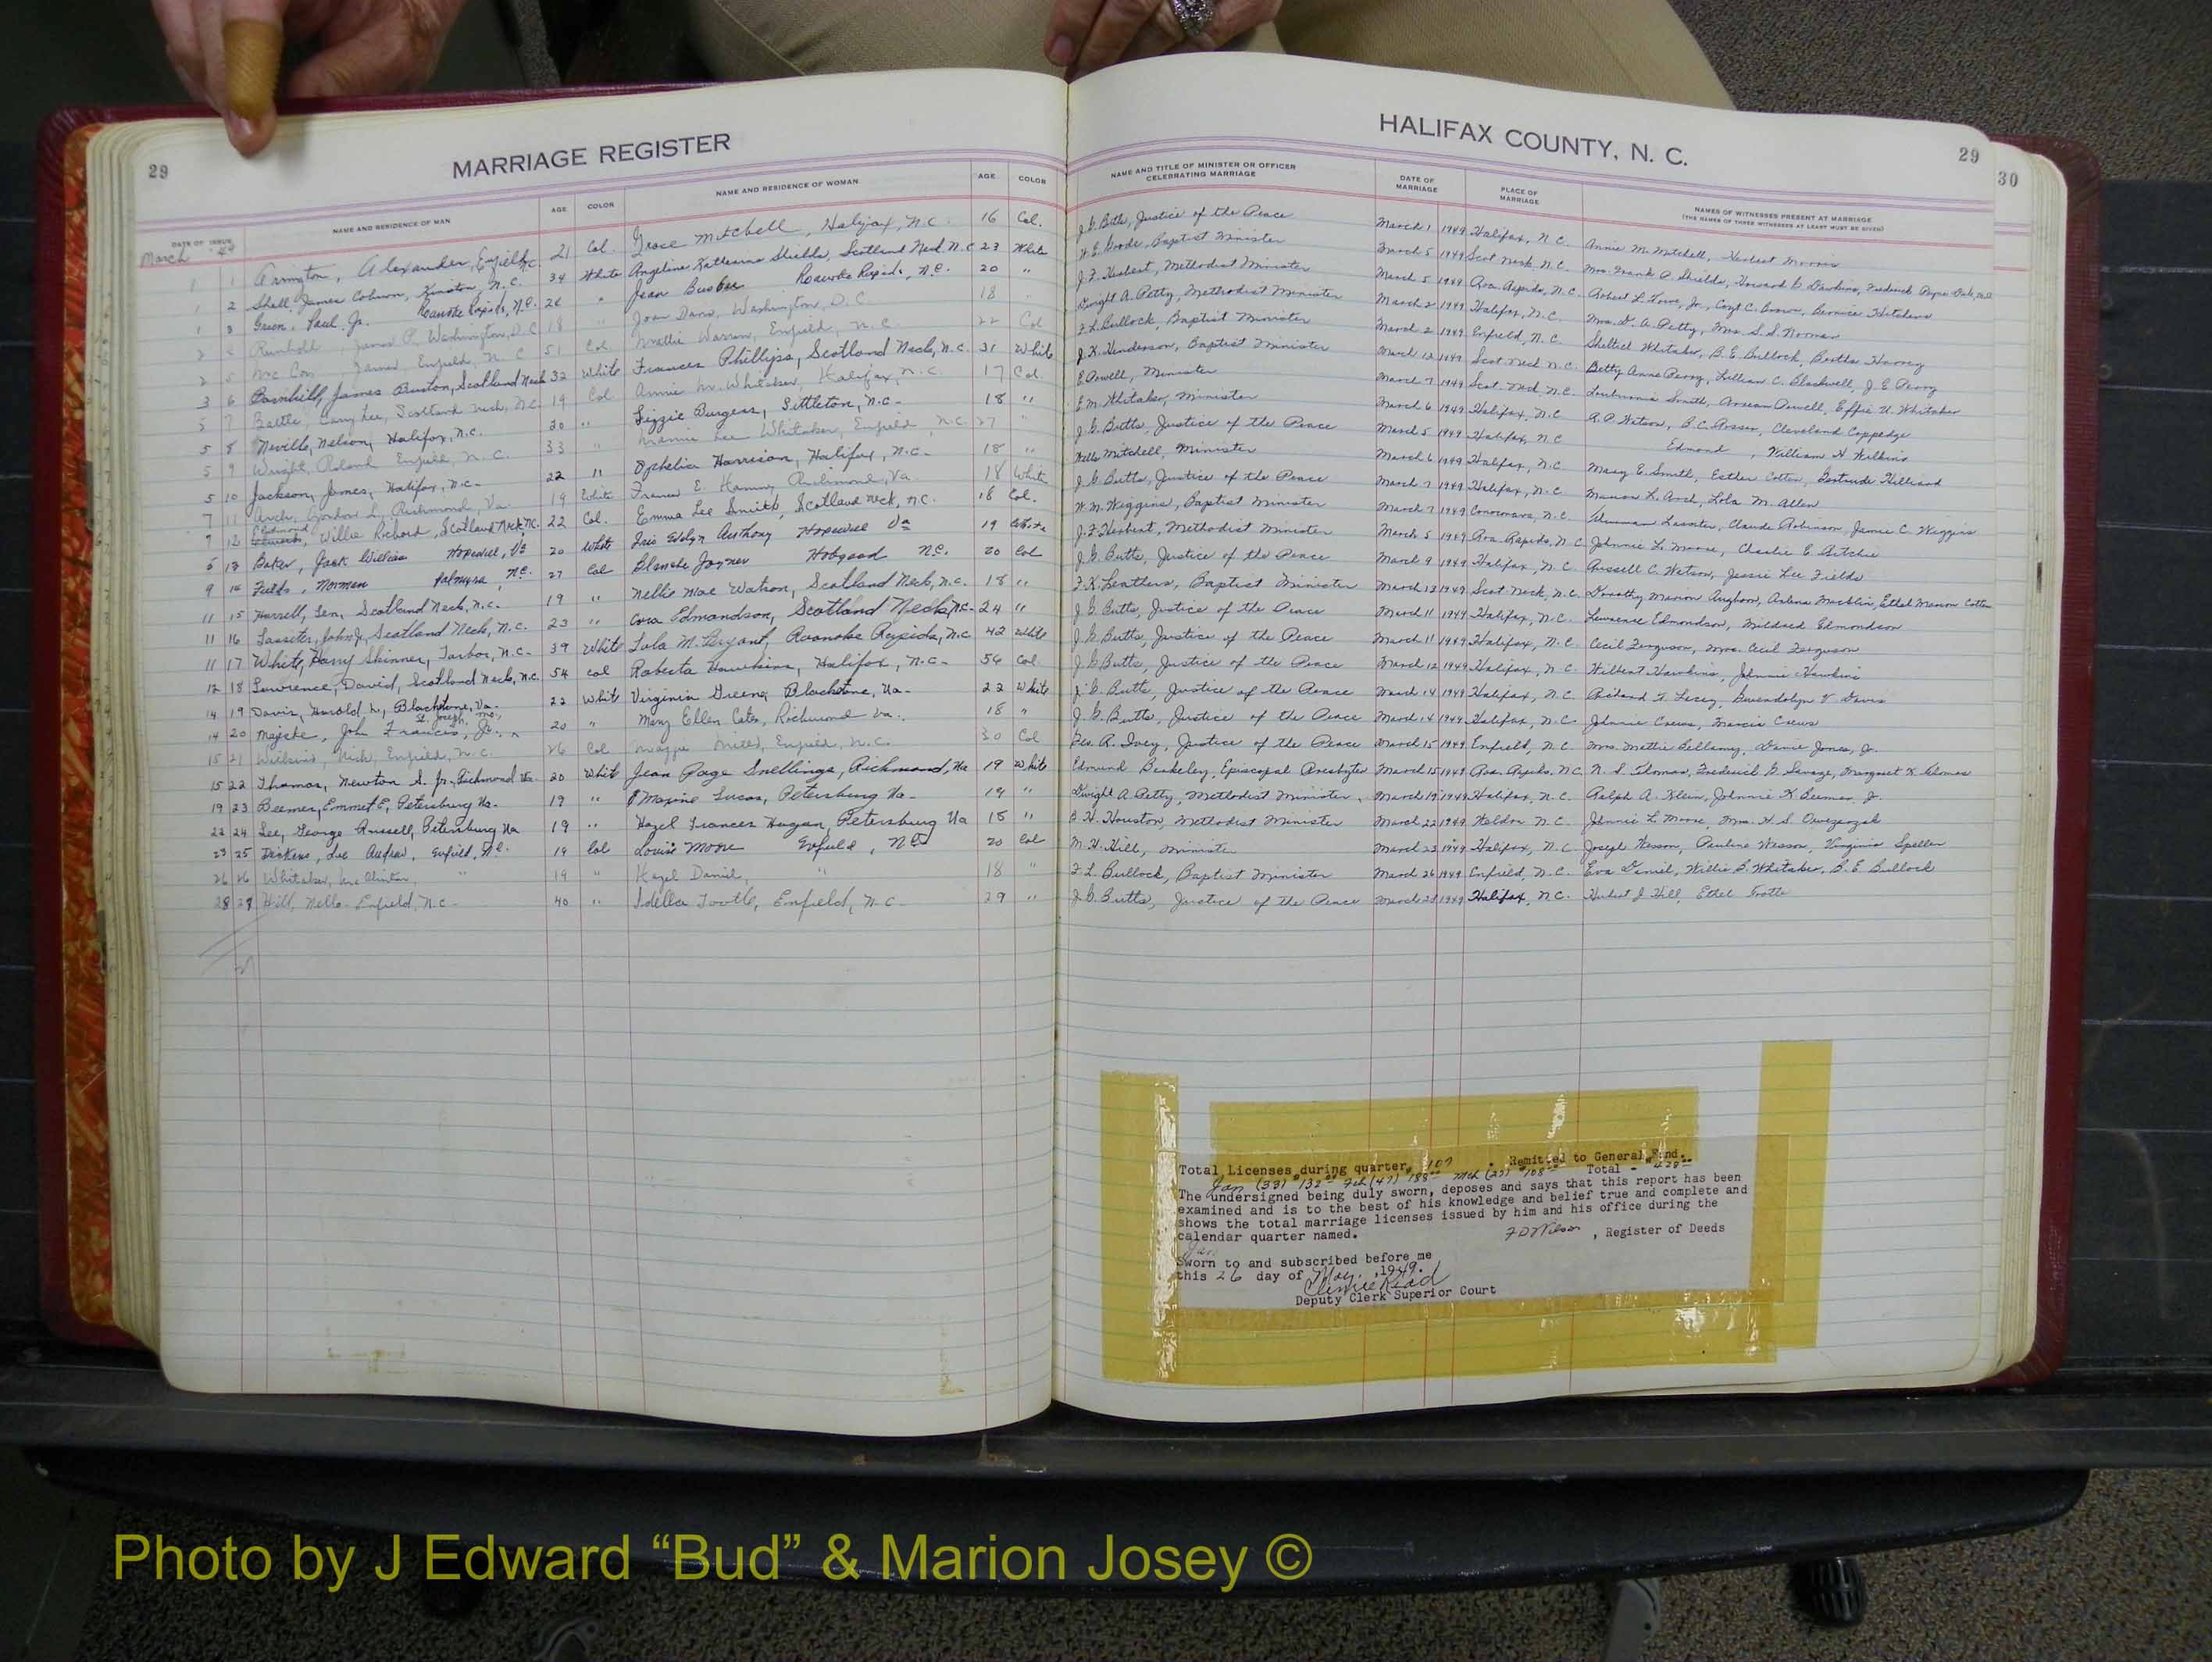 29
MARRIAGE REGISTER
DATE OF ISSUE
NAME AND RESIDENCE OF MAN
AGE
COLOR
NAME AND RESIDENCE OF WOMAN
AGE
COLOR
March '49
1 1 Arrington, Alexander, Enfield, N.C. 21 Col. Grace Mitchell, Halifax, N.C. 16 Col.
1 2 James Coburn, Kinston, N.C. 34 White Angeline Shields, Scotland Neck N.C. 23 White
1 3 Green, Paul, Jr. Roanoke Rapids, N.C. 26 " Jean Roanoke Rapids, N.C. 20 "
2 4 James P. Washington, D.C. 18 " Joan Davis, Washington, D.C. 18 "
2 5 James Enfield, N.C. 51 Col. Mattie Warren, Enfield, N.C. 22 Col
3 6 James Burton, Scotland Neck 32 White Frances Phillips, Scotland Neck, N.C. 31 White
5 7 Battle, Cary Lee, Scotland Neck, N.C. 19 Col Annie M. Whitaker, Halifax, N.C. 17 Col.
5 8 Neville, Nelson, Halifax, N.C. 20 " Lizzie Burgess, Littleton, N.C. 18 "
5 9 Wright, Roland Enfield, N.C. 33 " Mamie Lee Whitaker, Enfield, N.C. 27
5 10 Jackson, James, Halifax, N.C. 22 " Ophelia Harrison, Halifax, N.C. 18 "
7 11 Arch, Gordon L., Richmond, Va. 19 White Frances E. Richmond, Va. 18 White
7 12 Edmond, Willie Richard, Scotland Neck, N.C. 22 Col. Emma Lee Smith, Scotland Neck, N.C. 18 Col.
5 13 Baker, Jack William Hopewell, Va 20 White Iris Evelyn Anthony Hopewell Va 19 White
9 14 Fields, Norman Palmyra, N.C. 27 Col Blanche Joyner Hobgood N.C. 20 Col
11 15 Harrell, Scotland Neck, N.C. 19 " Nellie Mae Watson, Scotland Neck, N.C. 18 "
11 16 Lassiter, John Jr, Scotland Neck, N.C. 23 " Cora Edmondson, Scotland Neck, N.C. 24 "
11 17 White, Harry Skinner, Tarboro, N.C. 39 White Lula M. Bryant, Roanoke Rapids, N.C. 42 White
12 18 Lawrence, David, Scotland Neck, N.C. 54 Col Roberta Hawkins, Halifax, N.C. 56 Col.
14 19 Davis, Harold L., Blackstone, Va. 22 White Virginia Greene, Blackstone, Va. 22 White
14 20 John Francis, Jr., St. Joseph, Mo. 20 " Mary Ellen Cates, Richmond Va. 18 "
15 21 Wilkins, Enfield, N.C. 26 Col Enfield, N.C. 30 Col
15 22 Thomas, Newton S. Jr., Richmond Va. 20 White Jean Page Snellings, Richmond, Va 19 White
19 23 Beemer, Emmet E, Petersburg Va. 19 " Maxine Lucas, Petersburg Va. 19 "
22 24 Lee, George Russell, Petersburg Va 19 " Hazel Frances Hagan, Petersburg Va 18 "
23 25 Dickens, Enfield, N.C. 19 Col Louise Moore Enfield, N.C. 20 Col
26 26 Whitaker, McClinton, " 19 " Hazel Daniel, " 18 "
28 27 Hill, Enfield, N.C. 40 " Idella Enfield, N.C. 29 "
27
HALIFAX COUNTY, N. C.
29
30
NAME AND TITLE OF MINISTER OR OFFICER CELEBRATING MARRIAGE
DATE OF MARRIAGE
PLACE OF MARRIAGE
NAMES OF WITNESSES PRESENT AT MARRIAGE
(THE NAMES OF THREE WITNESSES AT LEAST MUST BE GIVEN)
J. G. Butts, Justice of the Peace March 1 1949 Halifax, N.C. Annie M. Mitchell, Herbert
Goode, Baptist Minister March 5 1949 Scot Neck N.C. Mrs. Frank P. Shields
J. F. Herbert, Methodist Minister March 5 1949 Roa. Rapids, N.C. Robert L. Jr.
Dwight A. Petty, Methodist Minister March 2 1949 Halifax, N.C. Mrs. D. A. Petty, Mrs. S. S. Norman
F. L. Bullock, Baptist Minister March 2 1949 Enfield, N.C. Whitaker, B. E. Bullock, Bertha Harvey
J. K. Henderson, Baptist Minister March 12 1949 Scot Neck N.C. Betty Anne Perry, Lillian C. Blackwell, J. E. Perry
Minister March 7 1949 Scot. Neck N.C. Smith, Effie U. Whitaker
E. M. Whitaker, Minister March 6 1949 Halifax, N.C. R. P. Watson, Cleveland Coppedge
J. G. Butts, Justice of the Peace March 5 1949 Halifax, N.C. Edmond, William H. Wilkins
Mitchell, Minister March 6 1949 Halifax, N.C. Mary E. Smith, Esther Cotten, Gertrude Hilliard
J. G. Butts, Justice of the Peace March 7 1949 Halifax, N.C. Marion L. Arch, Lola M. Allen
W. M. Wiggins, Baptist Minister March 7 1949 Conoconara, N.C. Lassiter, Claude Robinson, Jamie C. Wiggins
J. F. Herbert, Methodist Minister March 5 1949 Roa. Rapids, N.C. Johnnie L. Moore, Charlie E. Ritchie
J. G. Butts, Justice of the Peace March 9 1949 Halifax, N.C. Russell C. Watson, Jessie Lee Fields
Baptist Minister March 13 1949 Scot Neck, N.C. Dorothy Marion
J. G. Butts, Justice of the Peace March 11 1949 Halifax, N.C. Lawrence Edmondson, Mildred Edmondson
J. G. Butts, Justice of the Peace March 11 1949 Halifax, N.C. Cecil Ferguson, Mrs. Cecil Ferguson
J. G. Butts, Justice of the Peace March 12 1949 Halifax, N.C. Wilbert Hawkins, Johnnie Hawkins
J. G. Butts, Justice of the Peace March 14 1949 Halifax, N.C. Richard Gwendolyn V. Davis
J. G. Butts, Justice of the Peace March 14 1949 Halifax, N.C. Johnnie Crews, Francis Crews
Geo. R. Ivey, Justice of the Peace March 15 1949 Enfield, N.C. Mrs. Mattie Bellamy, Jones, Jr.
Edmund Berkeley, Episcopal Presbyter March 15 1949 Roa. Rapids, N.C. N. S. Thomas, Frederick G. Savage, Margaret K. Thomas
Dwight A. Petty, Methodist Minister, March 19 1949 Halifax, N.C. Ralph A. Klein, Johnnie K Beemer Jr.
B. H. Houston, Methodist Minister March 22 1949 Weldon N.C. Johnnie L. Moore, Mrs. H. S.
M. H. Hill, Minister March 23 1949 Halifax, N.C. Joseph Wesson, Pauline Wesson, Virginia Speller
F. L. Bullock, Baptist Minister March 26 1949 Enfield, N.C. Eva Daniel, Willie B. Whitaker, B. E. Bullock
J. G. Butts, Justice of the Peace March 28 1949 Halifax, N.C. Hubert J. Hill, Ethel
Total Licenses during quarter 107 . Remitted to General Fund.
Jan (33) $132.00 Feb (47) 188.00 Mch (27) $108.00 Total - $428.00
The undersigned being duly sworn, deposes and says that this report has been
examined and is to the best of his knowledge and belief true and complete and
shows the total marriage licenses issued by him and his office during the
calendar quarter named.
Jan
F D Wilson, Register of Deeds
Sworn to and subscribed before me
this 26 day of May, 1949.
Deputy Clerk Superior Court
Photo by J Edward “Bud” & Marion Josey ©